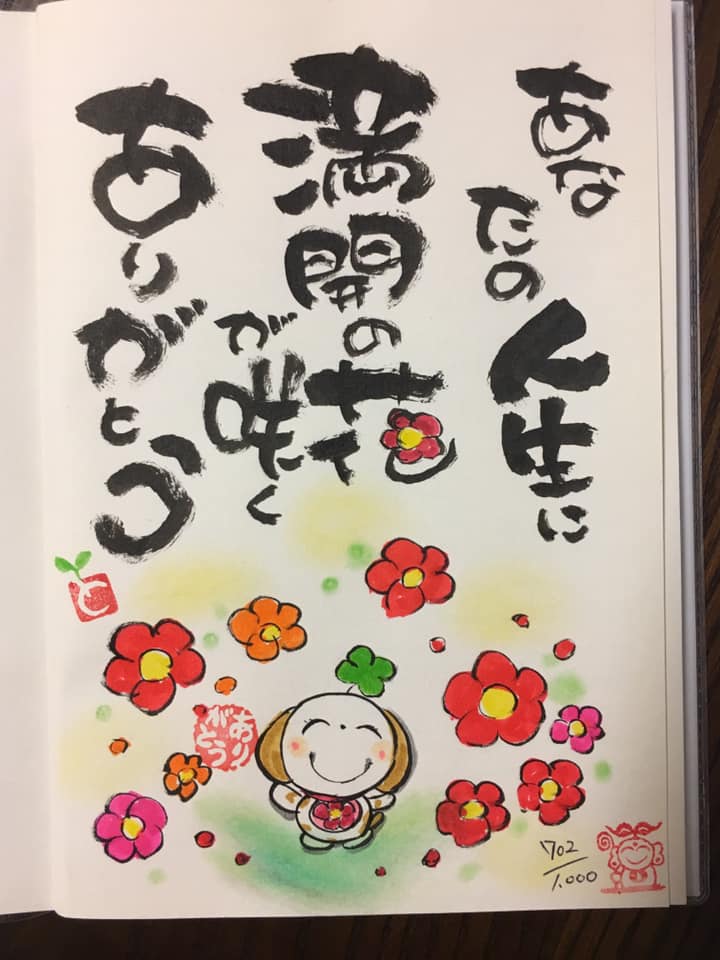 あなたの人生に
満開の花が咲く
ありがとう
と
ありがとう
702/1.000